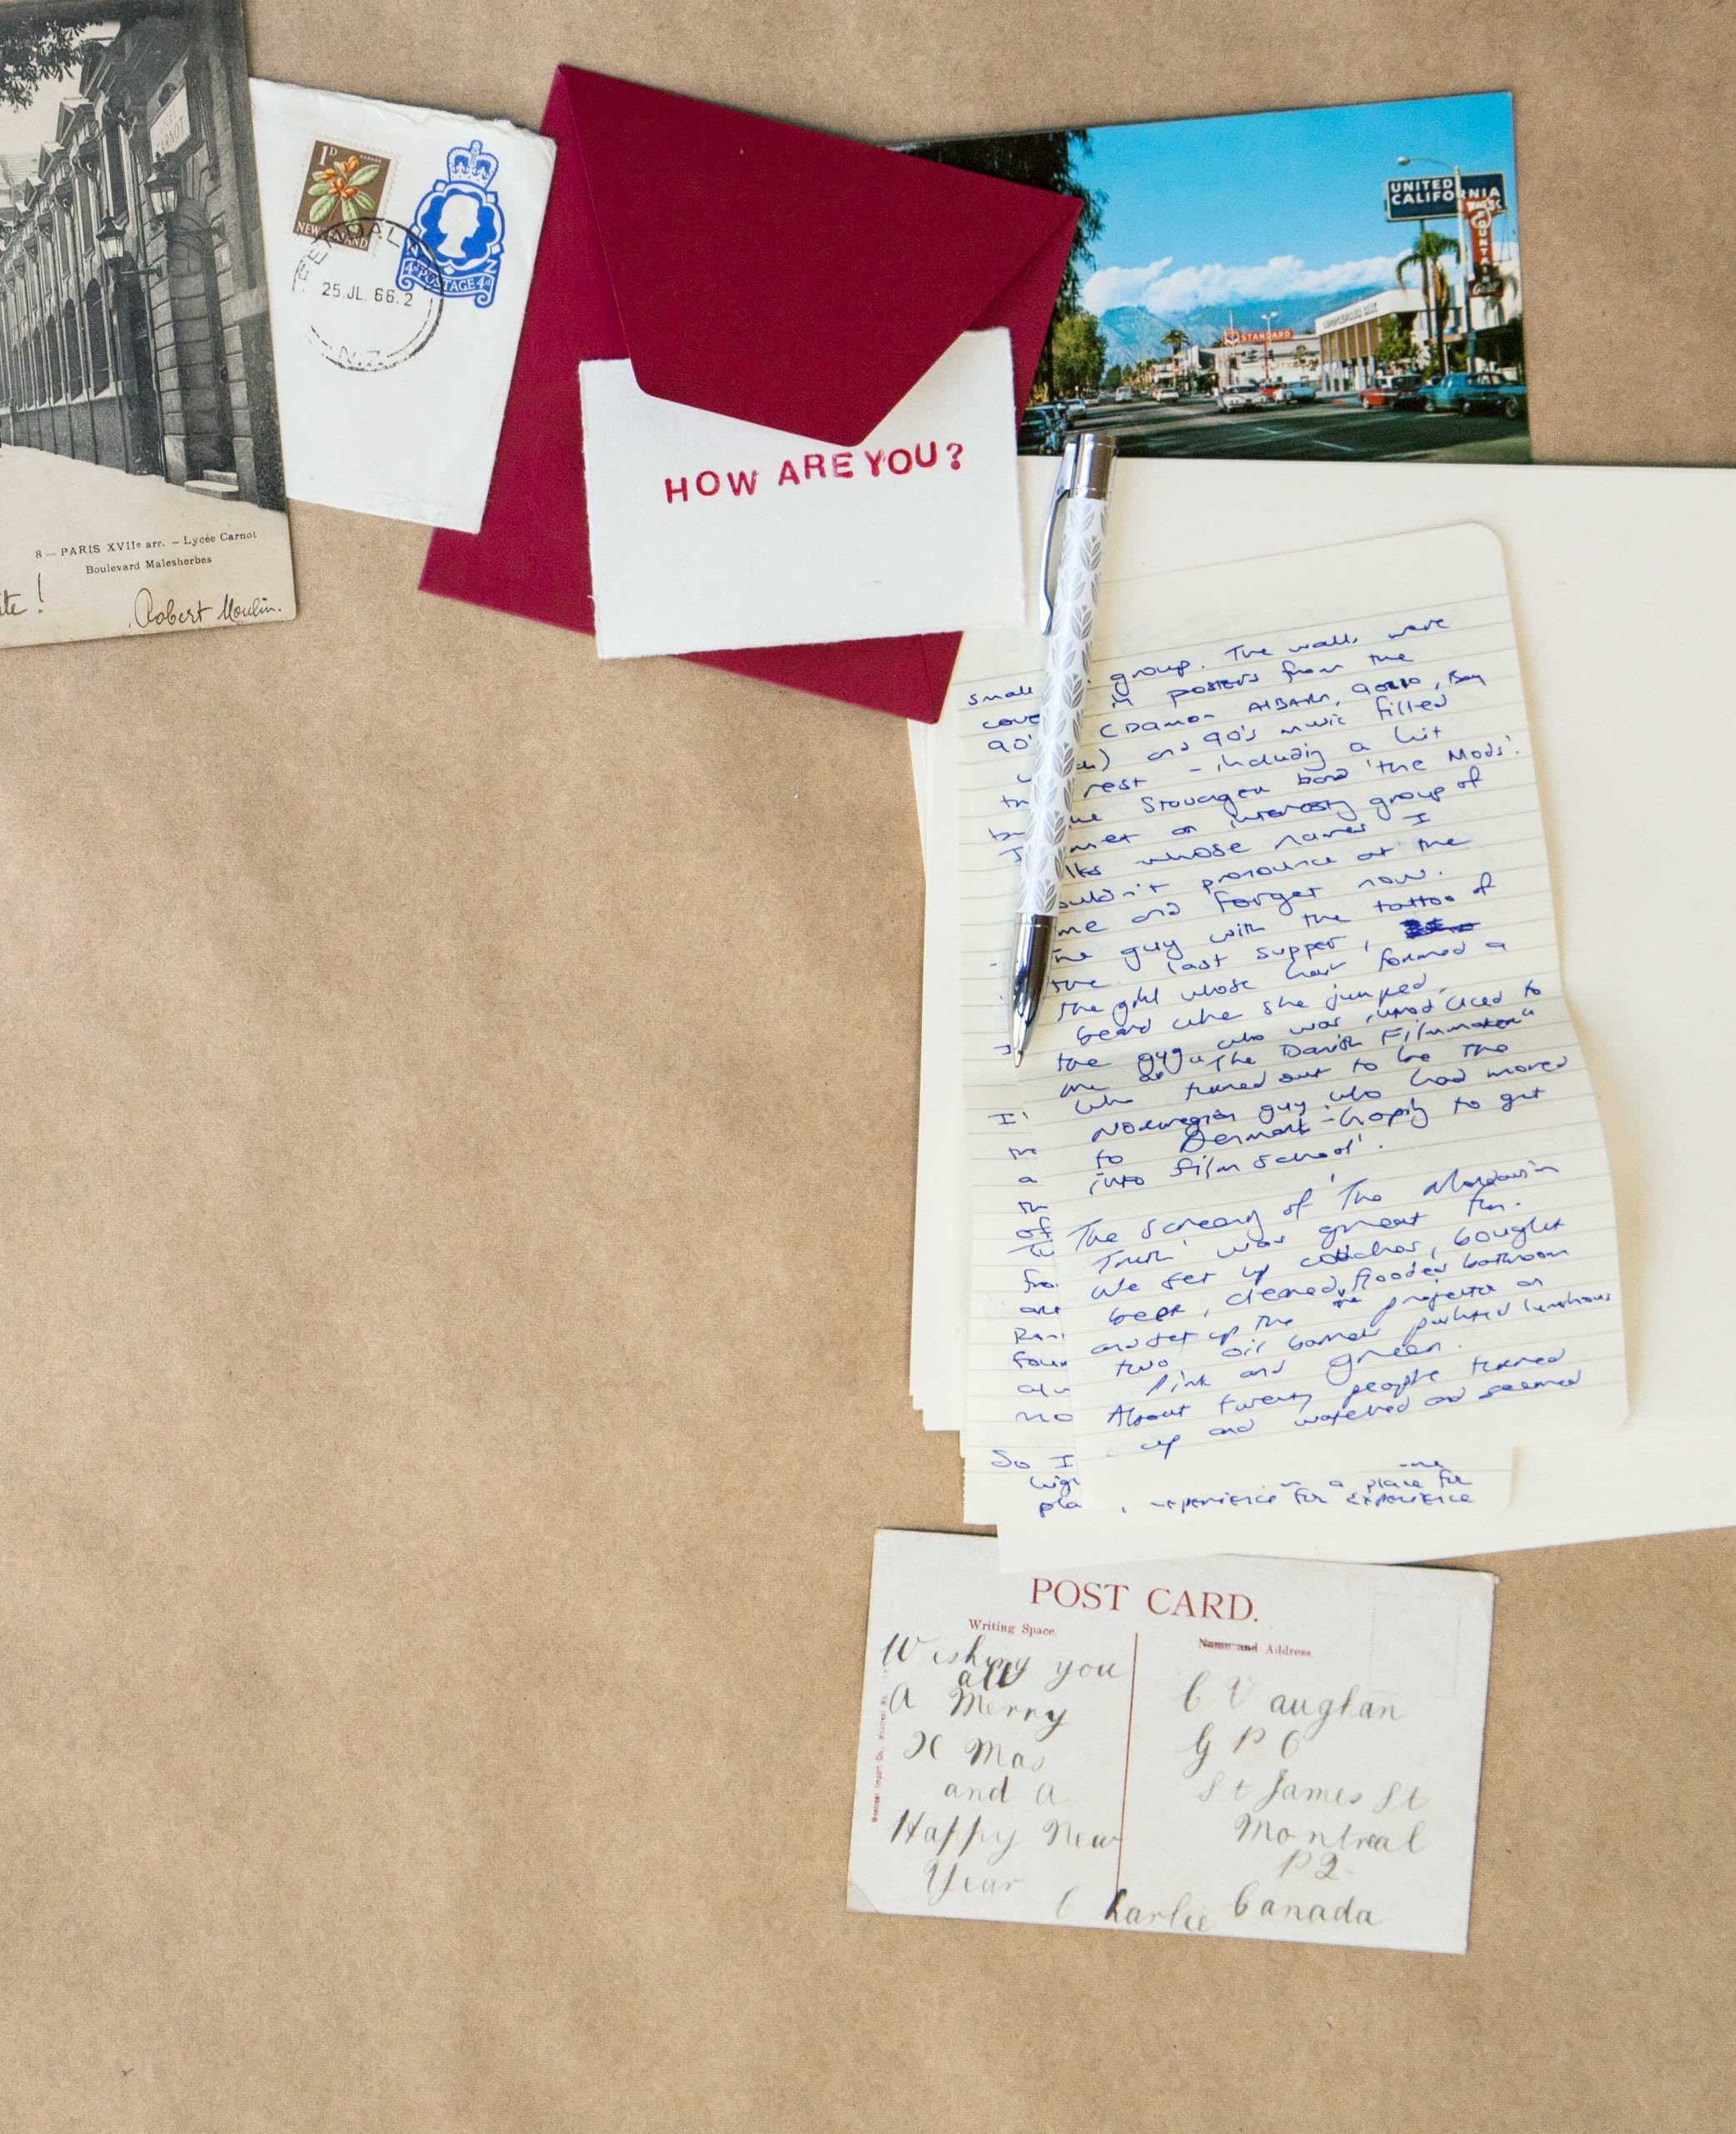 CARNOT
8 — PARIS XVIIe arr. — Lycée Carnot
Boulevard Malesherbes
Robert Moulin.
1D
NEW ZEALAND
4d POSTAGE 4d
25.JL.66.2
N.Z.
HOW ARE YOU?
UNITED
CALIFORNIA
BANK
STANDARD
small group. The walls were
in posters from the
90' (Damon Albarn,
and 90's music filled
rest - including a hit
band 'the Mods'.
met an interesting group of
whose names I
pronounce at the
and forget now.
guy with the tattoo of
the last supper,
the girl whose hair formed a
beard when she jumped,
the guy who was introduced to
me as "The Danish Filmmaker"
who turned out to be the
Norwegian guy who had moved
to Denmark - hoping to get
into film school'.
The screening of 'The
Truth' was great fun.
We set up couches, bought
beer, cleaned flooded bathroom
and set up the projector on
two oil barrels painted luminous
pink and green.
About twenty people turned
up and watched and seemed
So I
a place for
experience for experience
POST CARD.
Writing Space.
Name and Address.
Wishing you
all
A Merry
X Mas
and A
Happy New
Year
Charlie
C Vaughan
G P O
St James St
Montreal
P2
Canada